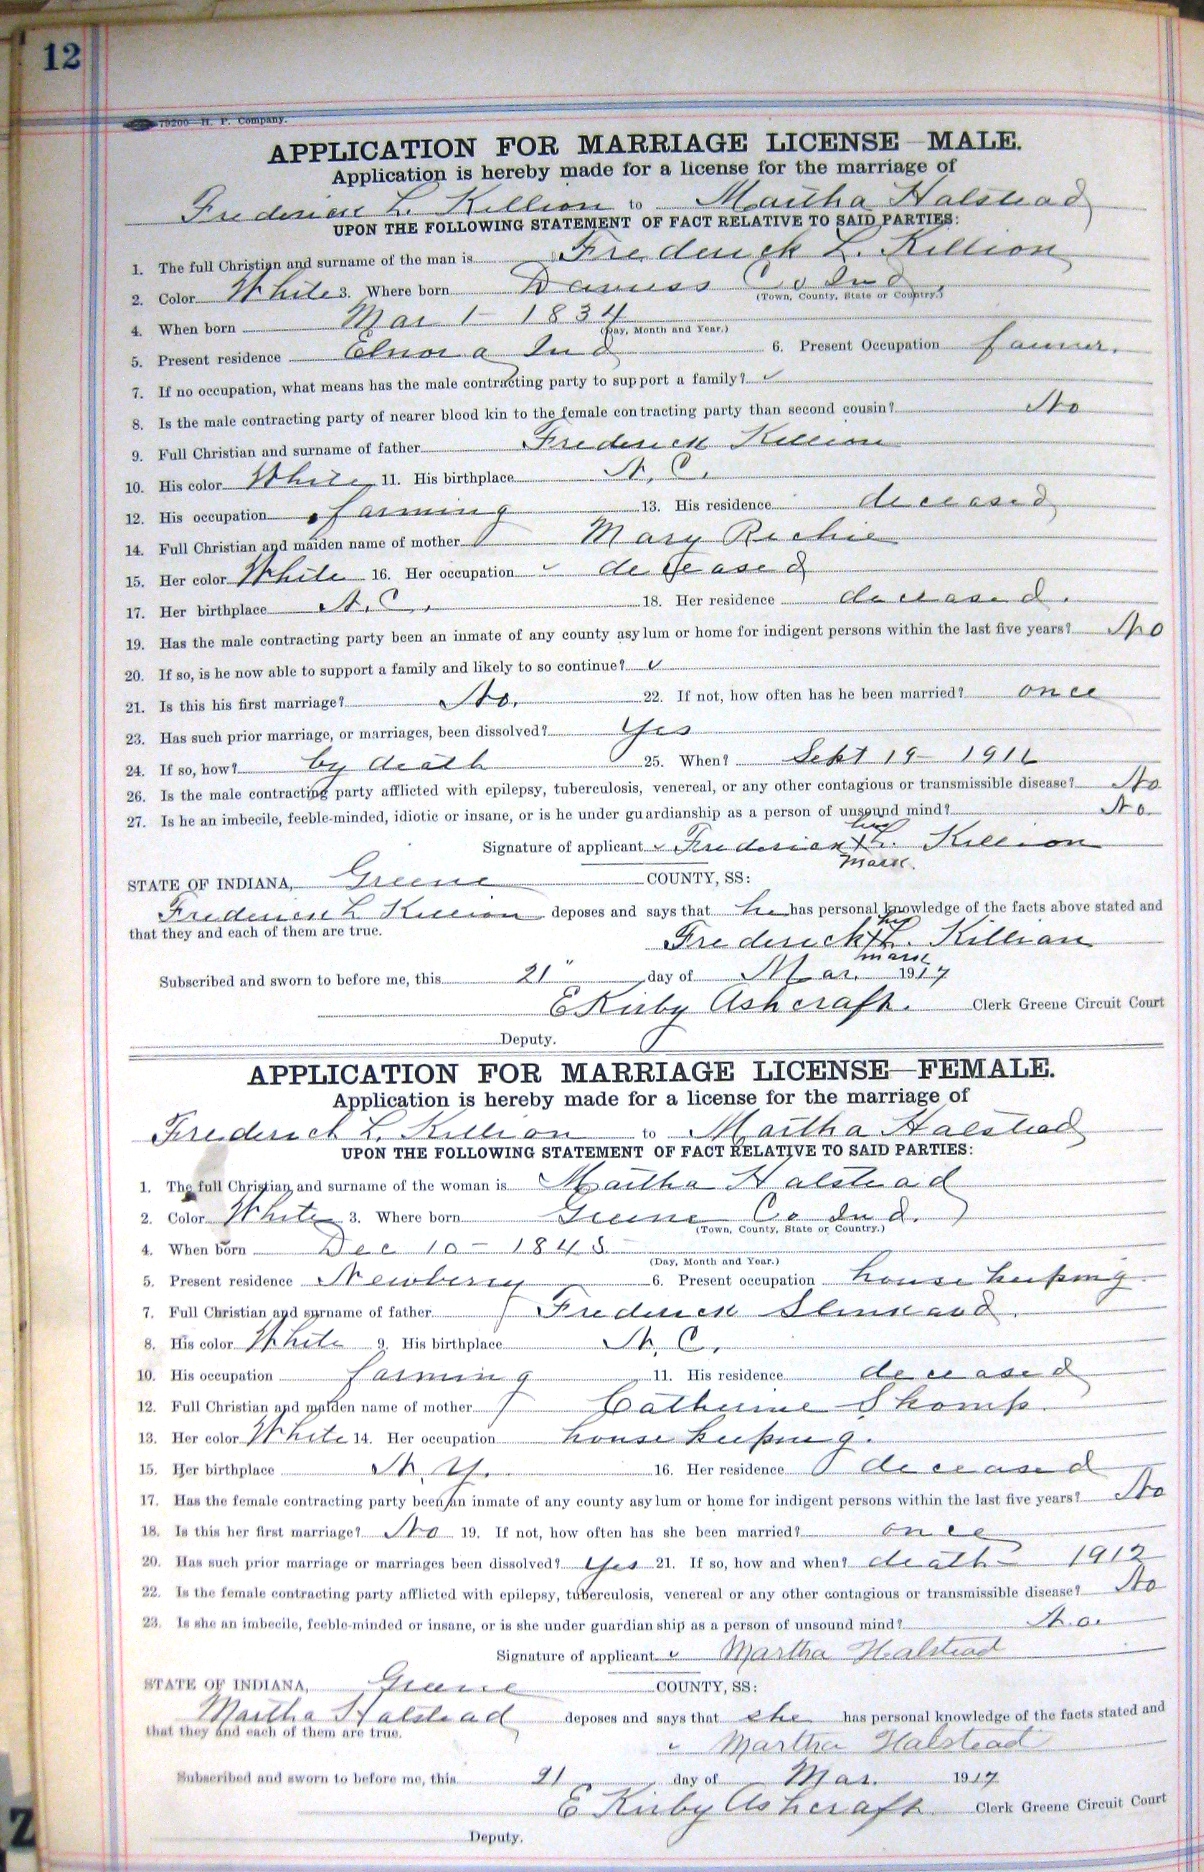 12
79200—H. P. Company.
APPLICATION FOR MARRIAGE LICENSE—MALE.
Application is hereby made for a license for the marriage of
Frederick L. Killion to Martha Halstead
UPON THE FOLLOWING STATEMENT OF FACT RELATIVE TO SAID PARTIES:
1. The full Christian and surname of the man is Frederick L. Killion
2. Color White 3. Where born Daviess Co Ind.
(Town, County, State or Country.)
4. When born Mar 1 - 1834
(Day, Month and Year.)
5. Present residence Elnora Ind 6. Present Occupation farmer.
7. If no occupation, what means has the male contracting party to support a family? ✓
8. Is the male contracting party of nearer blood kin to the female contracting party than second cousin? No
9. Full Christian and surname of father Frederick Killion
10. His color White 11. His birthplace N. C.
12. His occupation farming 13. His residence deceased
14. Full Christian and maiden name of mother Mary Richie
15. Her color White 16. Her occupation ✓ deceased
17. Her birthplace N. C. 18. Her residence deceased.
19. Has the male contracting party been an inmate of any county asylum or home for indigent persons within the last five years? No
20. If so, is he now able to support a family and likely to so continue? ✓
21. Is this his first marriage? No. 22. If not, how often has he been married? once
23. Has such prior marriage, or marriages, been dissolved? Yes
24. If so, how? by death 25. When? Sept 19 - 1916
26. Is the male contracting party afflicted with epilepsy, tuberculosis, venereal, or any other contagious or transmissible disease? No
27. Is he an imbecile, feeble-minded, idiotic or insane, or is he under guardianship as a person of unsound mind? No.
his
Signature of applicant ✓ Frederick X L. Killion
mark.
STATE OF INDIANA, Greene COUNTY, SS:
Frederick L Killion deposes and says that he has personal knowledge of the facts above stated and
that they and each of them are true.
his
Frederick X L. Killian
mark
Subscribed and sworn to before me, this 21" day of Mar. 1917
E Kirby Ashcraft. Clerk Greene Circuit Court
Deputy.
APPLICATION FOR MARRIAGE LICENSE—FEMALE.
Application is hereby made for a license for the marriage of
Frederick L. Killion to Martha Halstead
UPON THE FOLLOWING STATEMENT OF FACT RELATIVE TO SAID PARTIES:
1. The full Christian and surname of the woman is Martha Halstead
2. Color White 3. Where born Greene Co Ind.
(Town, County, State or Country.)
4. When born Dec 10 - 1845
(Day, Month and Year.)
5. Present residence Newberry 6. Present occupation housekeeping.
7. Full Christian and surname of father Frederick Slinkard.
8. His color White 9. His birthplace N. C.
10. His occupation farming 11. His residence deceased
12. Full Christian and maiden name of mother Catherine Shomp.
13. Her color White 14. Her occupation housekeeping.
15. Her birthplace N. Y. 16. Her residence deceased
17. Has the female contracting party been an inmate of any county asylum or home for indigent persons within the last five years? No
18. Is this her first marriage? No 19. If not, how often has she been married? once
20. Has such prior marriage or marriages been dissolved? Yes 21. If so, how and when? death - 1912
22. Is the female contracting party afflicted with epilepsy, tuberculosis, venereal or any other contagious or transmissible disease? No
23. Is she an imbecile, feeble-minded or insane, or is she under guardianship as a person of unsound mind? No.
Signature of applicant ✓ Martha Halstead
STATE OF INDIANA, Greene COUNTY, SS:
Martha Halstead deposes and says that she has personal knowledge of the facts stated and
that they and each of them are true.
✓ Martha Halstead
Subscribed and sworn to before me, this 21 day of Mar. 1917
E Kirby Ashcraft Clerk Greene Circuit Court
Deputy.
Z